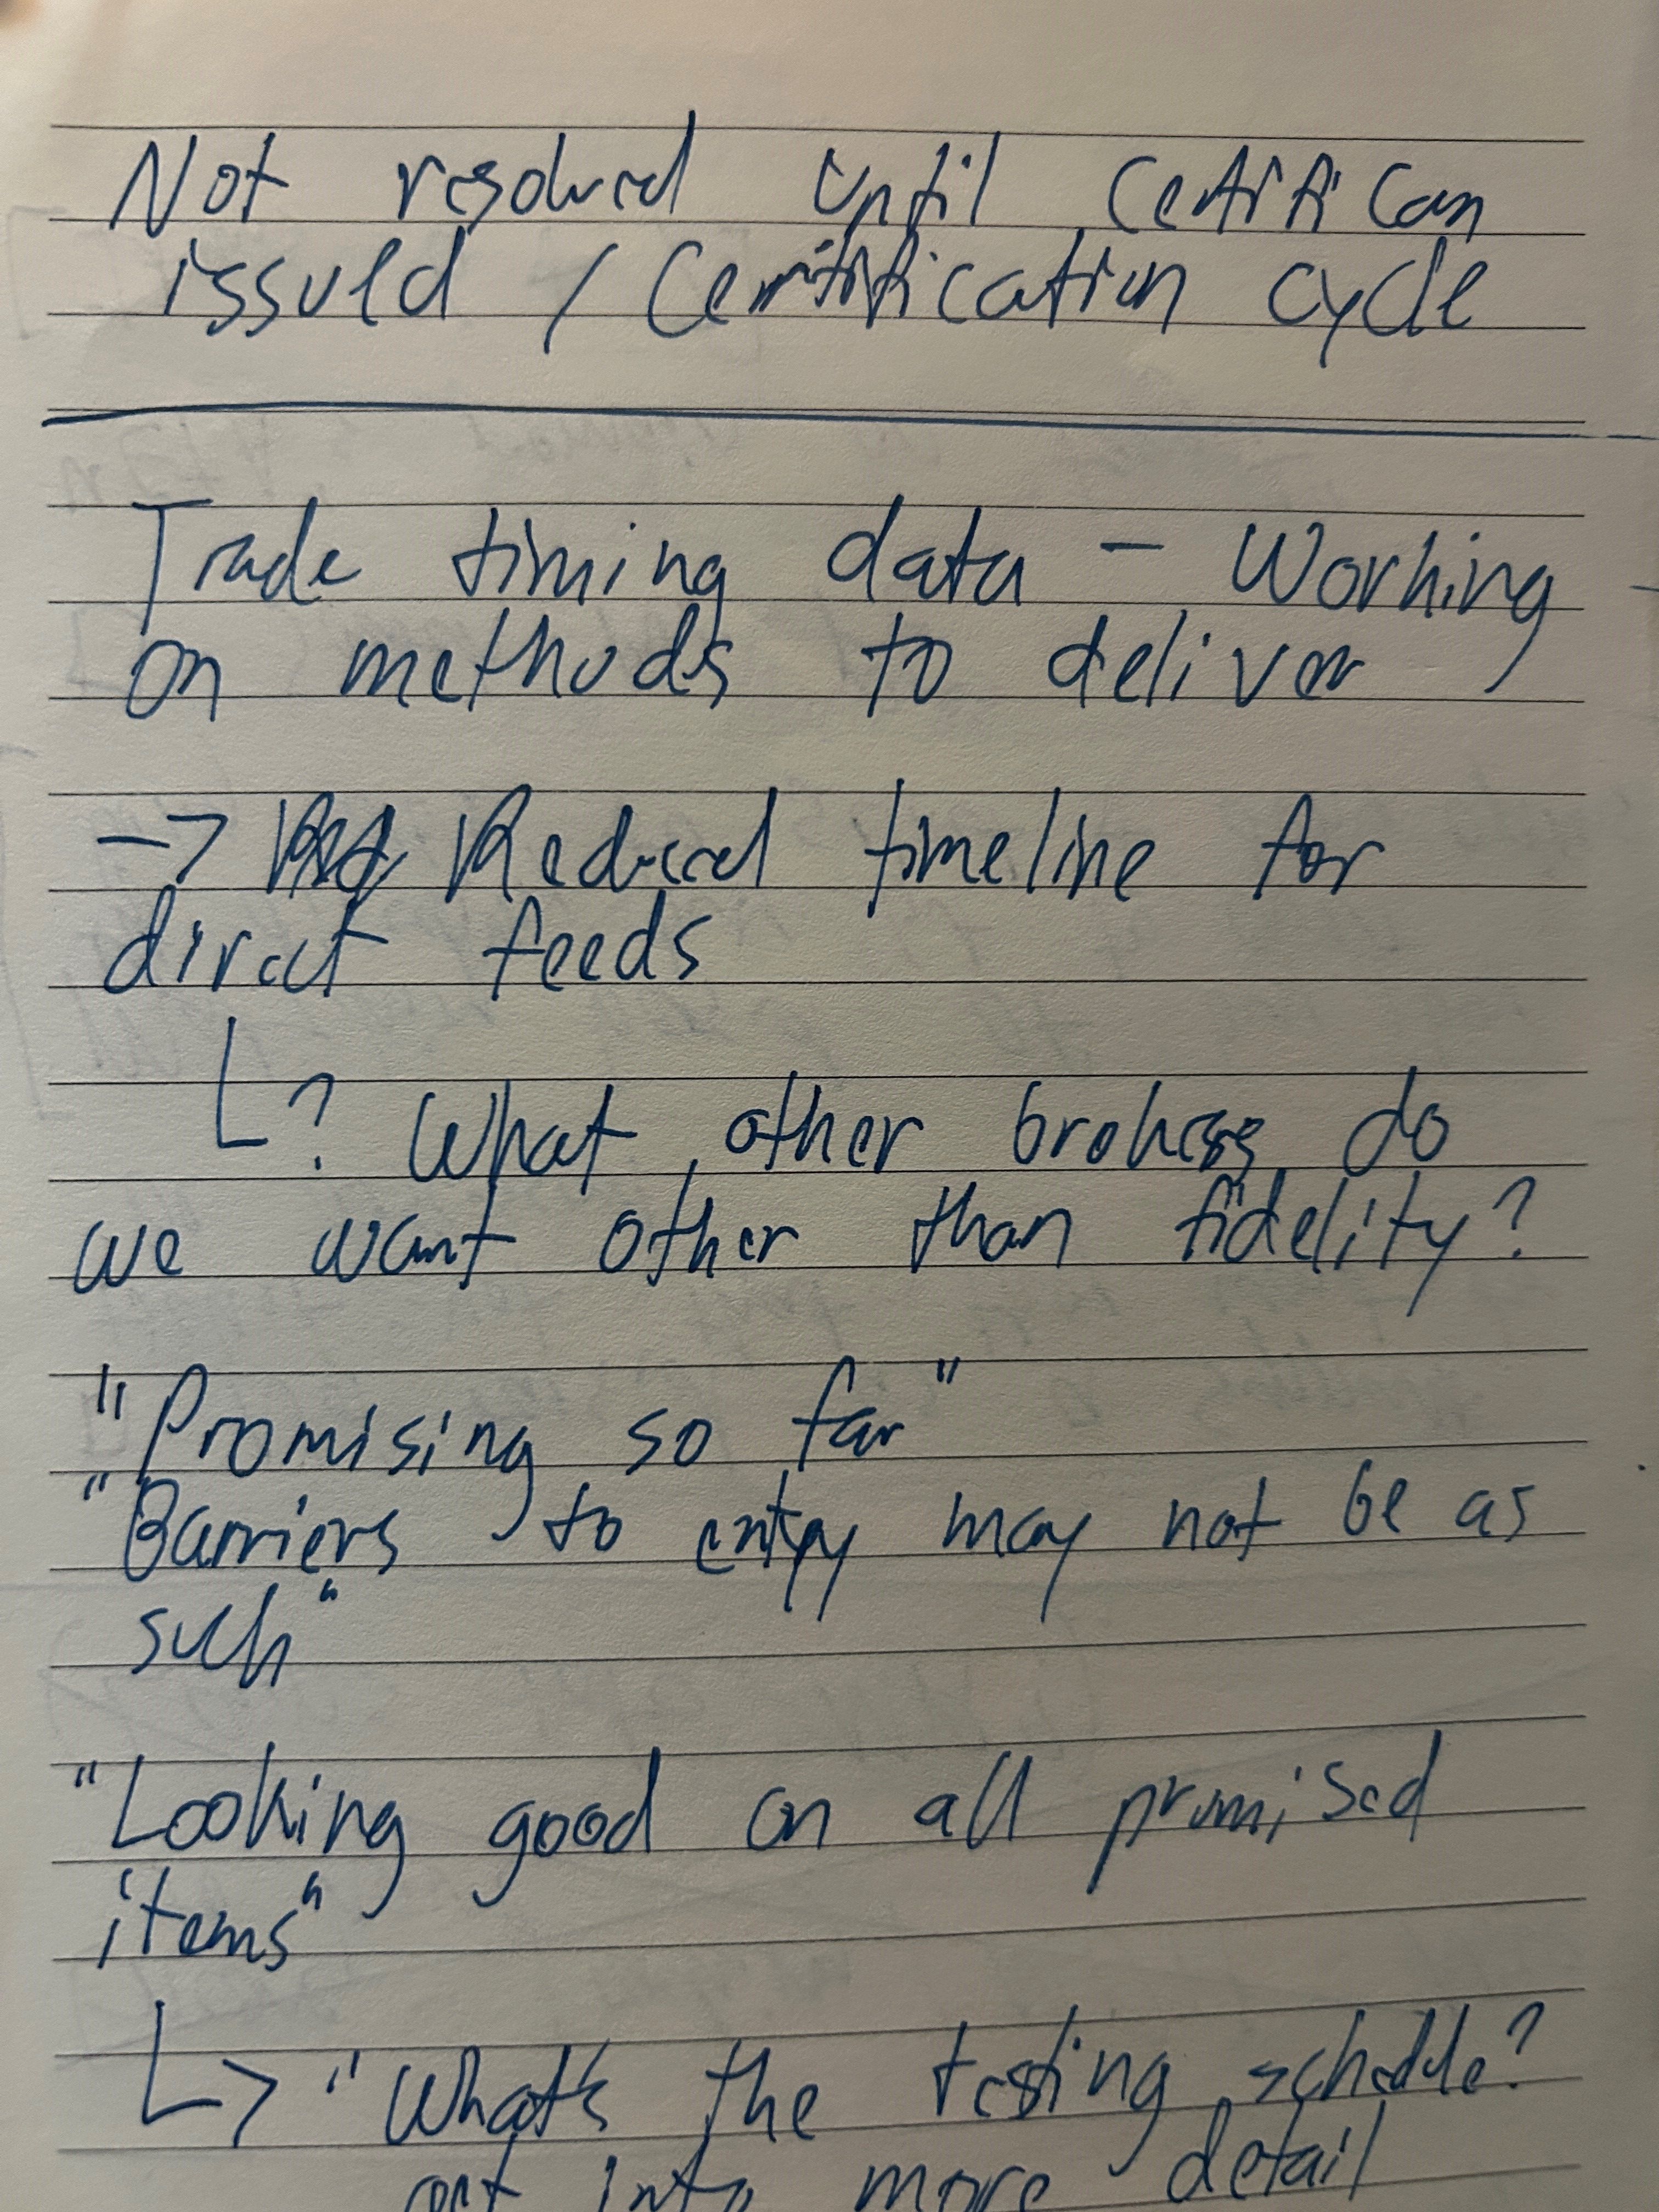 Not resolved until certifican
issued / Certification cycle
Trade timing data - Working
on methods to deliver
-> Reduced timeline for
direct feeds
? What other brokers do
we want other than fidelity?
"Promising so far"
"Barriers to entry may not be as
such"
"Looking good on all promised
items"
↳ "What's the testing schedule?
get into more detail